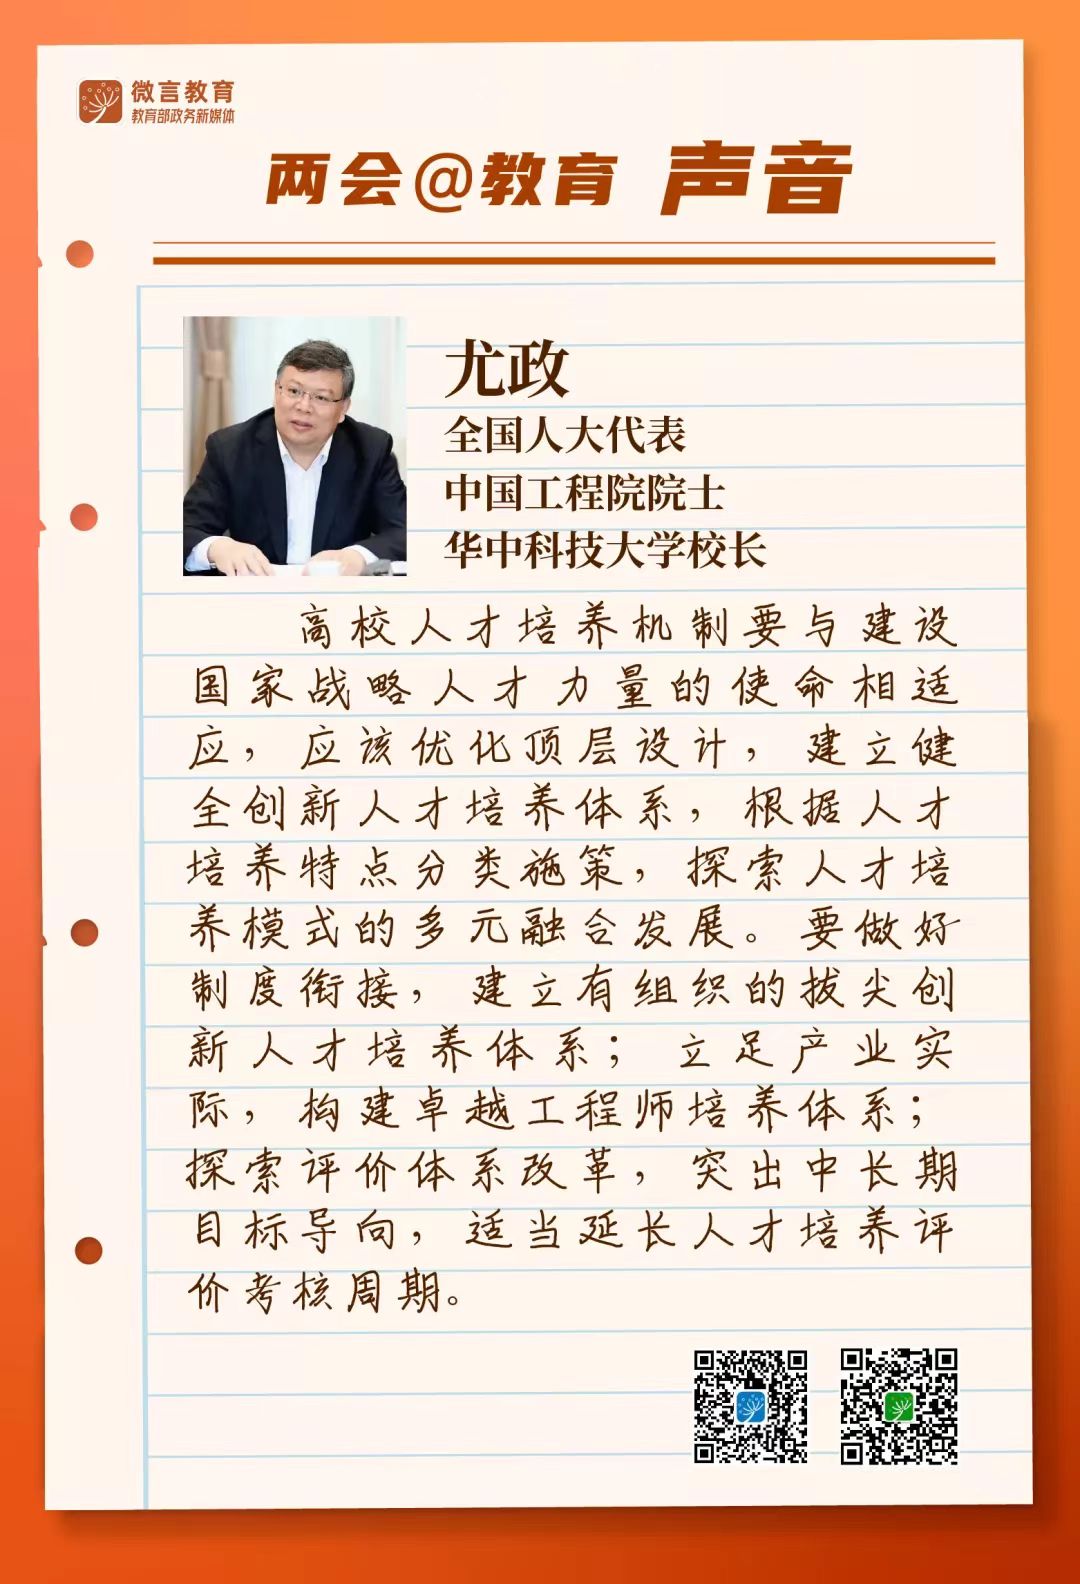 微言教育
教育部政务新媒体
两会@教育 声音
尤政
全国人大代表
中国工程院院士
华中科技大学校长
高校人才培养机制要与建设
国家战略人才力量的使命相适
应，应该优化顶层设计，建立健
全创新人才培养体系，根据人才
培养特点分类施策，探索人才培
养模式的多元融合发展。要做好
制度衔接，建立有组织的拔尖创
新人才培养体系；立足产业实
际，构建卓越工程师培养体系；
探索评价体系改革，突出中长期
目标导向，适当延长人才培养评
价考核周期。